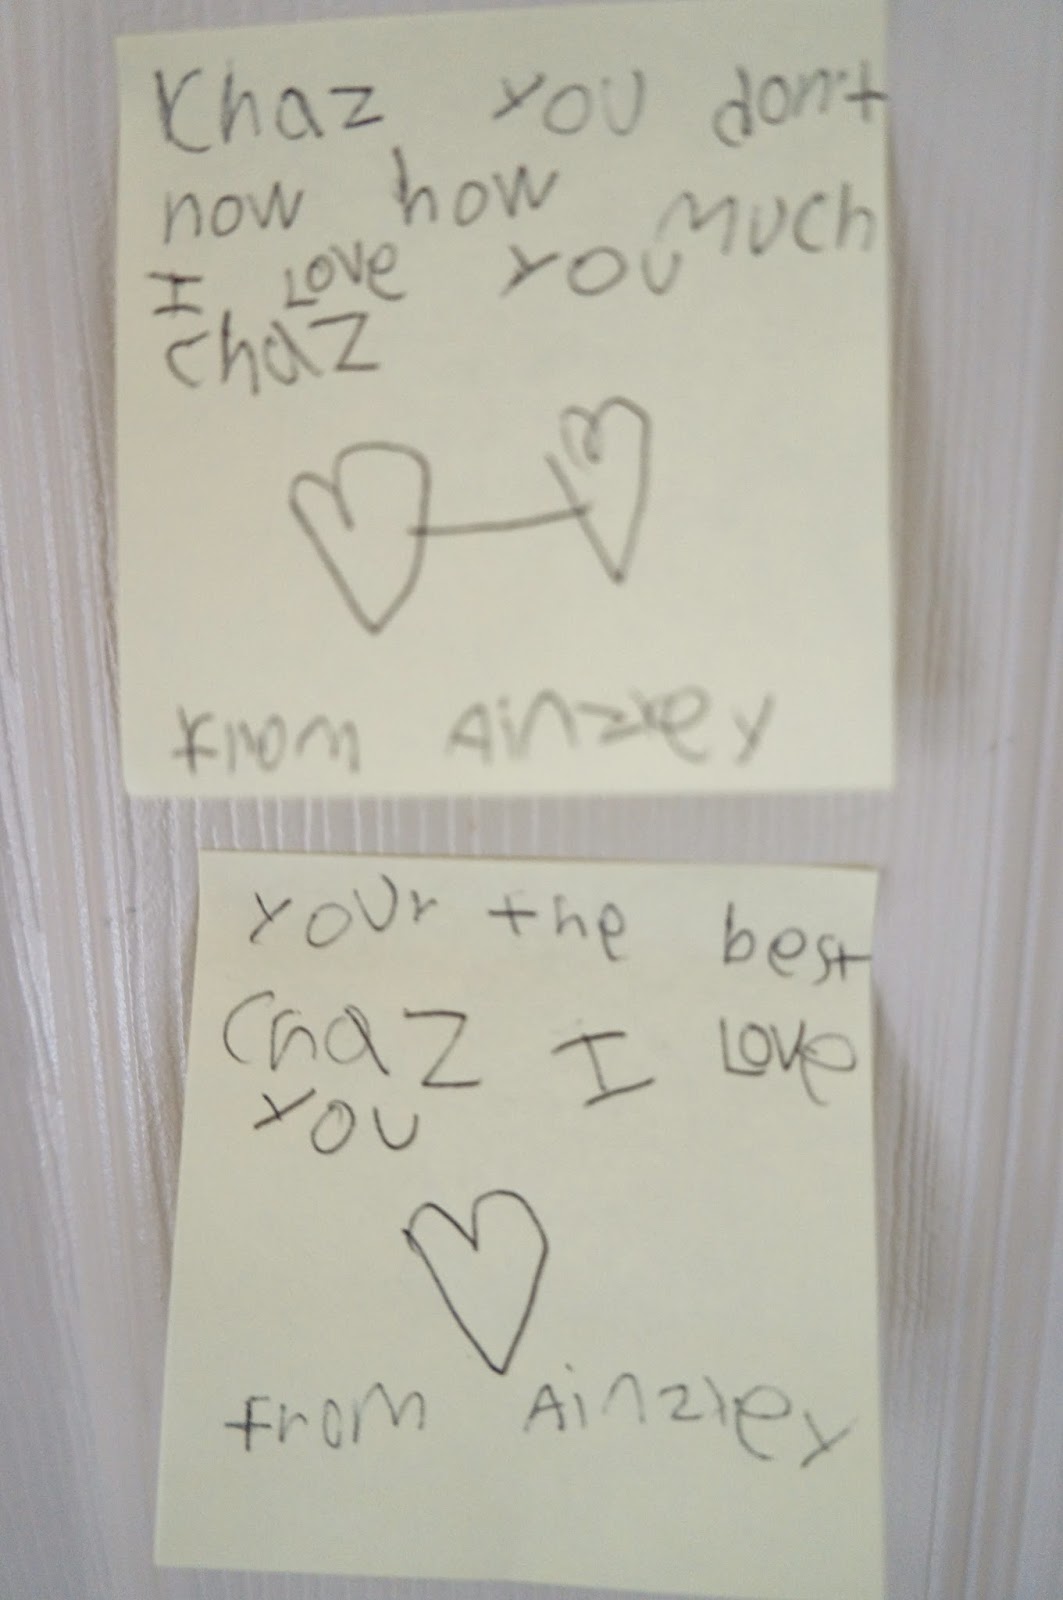 Chaz you don't
now how much
I Love you
Chaz
from Ainzley
your the best
Chaz I Love
you
from Ainzley